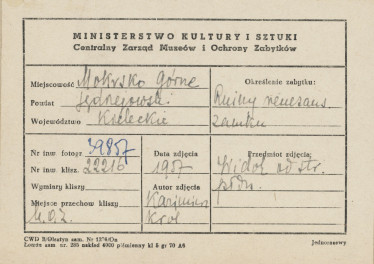 MINISTERSTWO KULTURY I SZTUKI
Centralny Zarząd Muzeów i Ochrony Zabytków
Miejscowość Mokrsko Górne
Powiat Jędrzejowski
Województwo Kieleckie
Określenie zabytku:
Ruiny renesans.
zamku
Nr inw fotogr. 39857
Nr inw klisz. 22216
Wymiary kliszy
Miejsce przechow kliszy
Data zdjęcia
1957
Autor zdjęcia
Kazimierz
Król
Przedmiot zdjęcia:
Widok od str.
płdn.
CWD R/Olsztyn zam. Nr 1276/Oa
zam. nr. 285 nakład 6000 piśmienny kl 5 gr 70 A6
Jednorazowy